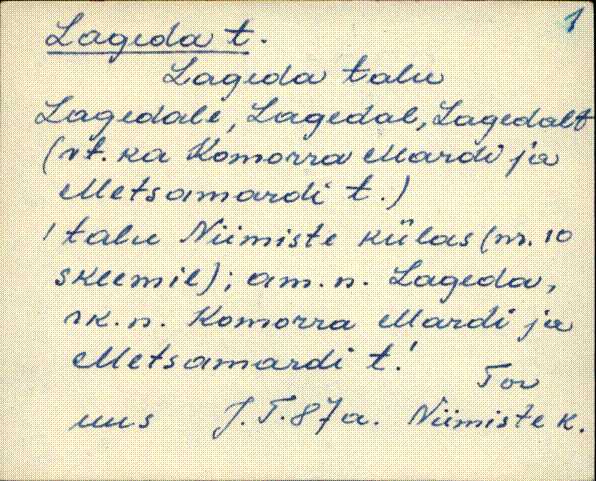 1
Lageda t.
Lageda talu
Lagedale, Lagedal, Lagedalt
(vt. ka Komorra Mardi ja
Metsamardi t.)
1 talu Niimiste külas (nr. 10
skeemil); am. n. Lageda,
rk. n. Komorra Mardi ja
Metsamardi t.
Tor
uus J. T. 87a. Niimiste k.